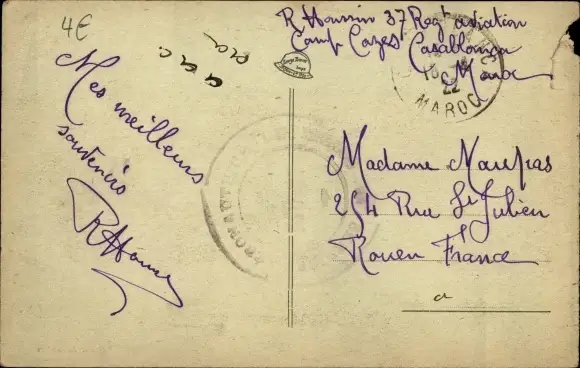 4€
R Houssin 37 Regt aviation
Camp Cazes Casablanca
Maroc
MAROC
22
Mes meilleurs
souvenirs
Madame Maupas
254 Rue St Julien
Rouen France